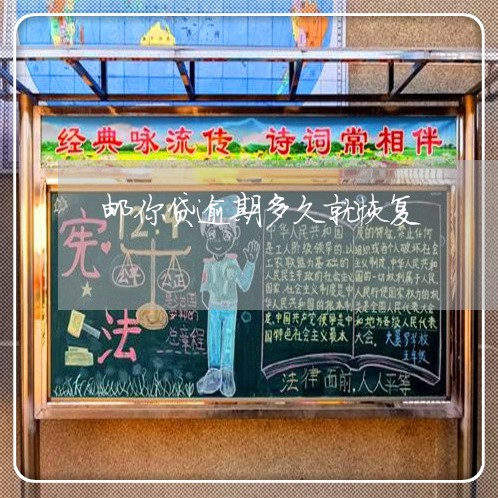 经典咏流传 诗词常相伴
邮你贷逾期多久就恢复
宪法
12.4
公平 公正
总章程
中华人民共和国
是工人阶级领导的,以
工农联盟为基础的
人民民主专政的社会主义
国家,社会主义制度是中
华人民共和国的根本制
度,中国共产党领导是中
国特色社会主义最本
质的特征,禁止任何
组织或者个人破坏社会
主义制度,中华人民共和
国的一切权利属于人民,
人民行使国家权力的机
关是全国人民代表大会
和地方各级人民代表
大会.
学校
五年级
法律面前,人人平等